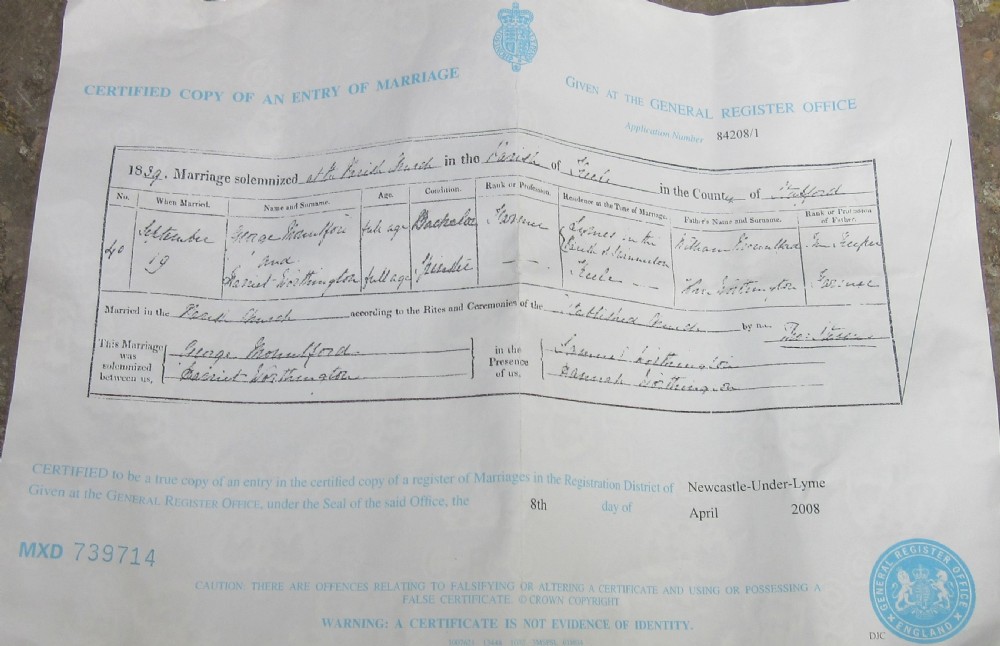 CERTIFIED COPY OF AN ENTRY OF MARRIAGE
GIVEN AT THE GENERAL REGISTER OFFICE
Application Number 84208/1
1839. Marriage solemnized at the Parish Church in the Parish of Keele in the County of Stafford
No. When Married. Name and Surname. Age. Condition. Rank or Profession. Residence at the Time of Marriage. Father's Name and Surname. Rank or Profession of Father.
40 September 19
George Moulford full age Bachelor Farmer in the Parish of William
and
Harriet Worthington full age Keele Worthington Farmer
Married in the Parish Church according to the Rites and Ceremonies of the Established Church by me,
This Marriage was solemnized between us,
George Moulford
Harriet Worthington
in the Presence of us,
Samuel Worthington
Hannah Worthington
CERTIFIED to be a true copy of an entry in the certified copy of a register of Marriages in the Registration District of Newcastle-Under-Lyme
Given at the GENERAL REGISTER OFFICE, under the Seal of the said Office, the 8th day of April 2008
MXD 739714
CAUTION: THERE ARE OFFENCES RELATING TO FALSIFYING OR ALTERING A CERTIFICATE AND USING OR POSSESSING A
FALSE CERTIFICATE. © CROWN COPYRIGHT
WARNING: A CERTIFICATE IS NOT EVIDENCE OF IDENTITY.
GENERAL REGISTER OFFICE
ENGLAND
DJC